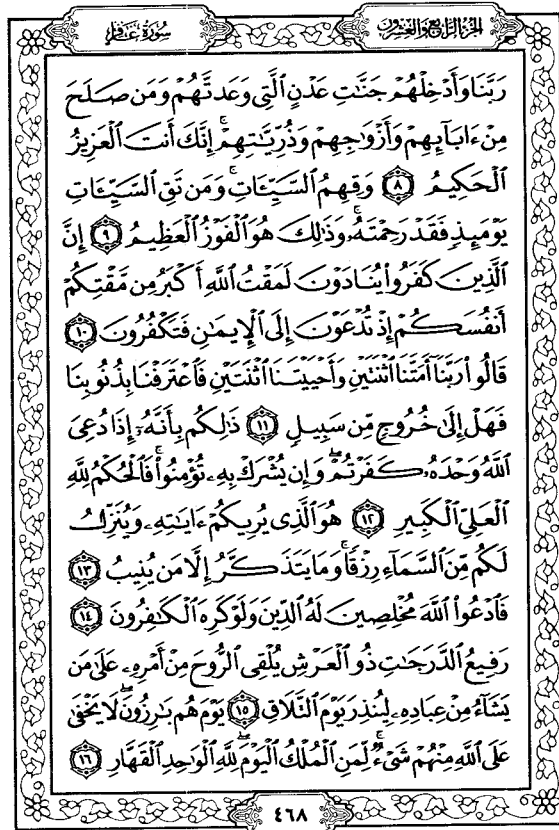 سُورَةُ غَافِرٍ
الجزء الرابع والعشرون
رَبَّنَا وَأَدْخِلْهُمْ جَنَّٰتِ عَدْنٍ ٱلَّتِى وَعَدتَّهُمْ وَمَن صَلَحَ
مِنْ ءَابَآئِهِمْ وَأَزْوَٰجِهِمْ وَذُرِّيَّٰتِهِمْ ۚ إِنَّكَ أَنتَ ٱلْعَزِيزُ
ٱلْحَكِيمُ ٨ وَقِهِمُ ٱلسَّيِّـَٔاتِ ۚ وَمَن تَقِ ٱلسَّيِّـَٔاتِ
يَوْمَئِذٍ فَقَدْ رَحِمْتَهُۥ ۚ وَذَٰلِكَ هُوَ ٱلْفَوْزُ ٱلْعَظِيمُ ٩ إِنَّ
ٱلَّذِينَ كَفَرُوا۟ يُنَادَوْنَ لَمَقْتُ ٱللَّهِ أَكْبَرُ مِن مَّقْتِكُمْ
أَنفُسَكُمْ إِذْ تُدْعَوْنَ إِلَى ٱلْإِيمَٰنِ فَتَكْفُرُونَ ١٠
قَالُوا۟ رَبَّنَآ أَمَتَّنَا ٱثْنَتَيْنِ وَأَحْيَيْتَنَا ٱثْنَتَيْنِ فَٱعْتَرَفْنَا بِذُنُوبِنَا
فَهَلْ إِلَىٰ خُرُوجٍ مِّن سَبِيلٍ ١١ ذَٰلِكُم بِأَنَّهُۥٓ إِذَا دُعِىَ
ٱللَّهُ وَحْدَهُۥ كَفَرْتُمْ ۖ وَإِن يُشْرَكْ بِهِۦ تُؤْمِنُوا۟ ۚ فَٱلْحُكْمُ لِلَّهِ
ٱلْعَلِىِّ ٱلْكَبِيرِ ١٢ هُوَ ٱلَّذِى يُرِيكُمْ ءَايَٰتِهِۦ وَيُنَزِّلُ
لَكُم مِّنَ ٱلسَّمَآءِ رِزْقًا ۚ وَمَا يَتَذَكَّرُ إِلَّا مَن يُنِيبُ ١٣
فَٱدْعُوا۟ ٱللَّهَ مُخْلِصِينَ لَهُ ٱلدِّينَ وَلَوْ كَرِهَ ٱلْكَٰفِرُونَ ١٤
رَفِيعُ ٱلدَّرَجَٰتِ ذُو ٱلْعَرْشِ يُلْقِى ٱلرُّوحَ مِنْ أَمْرِهِۦ عَلَىٰ مَن
يَشَآءُ مِنْ عِبَادِهِۦ لِيُنذِرَ يَوْمَ ٱلتَّلَاقِ ١٥ يَوْمَ هُم بَٰرِزُونَ ۖ لَا يَخْفَىٰ
عَلَى ٱللَّهِ مِنْهُمْ شَىْءٌ ۚ لِّمَنِ ٱلْمُلْكُ ٱلْيَوْمَ ۖ لِلَّهِ ٱلْوَٰحِدِ ٱلْقَهَّارِ ١٦
٤٦٨